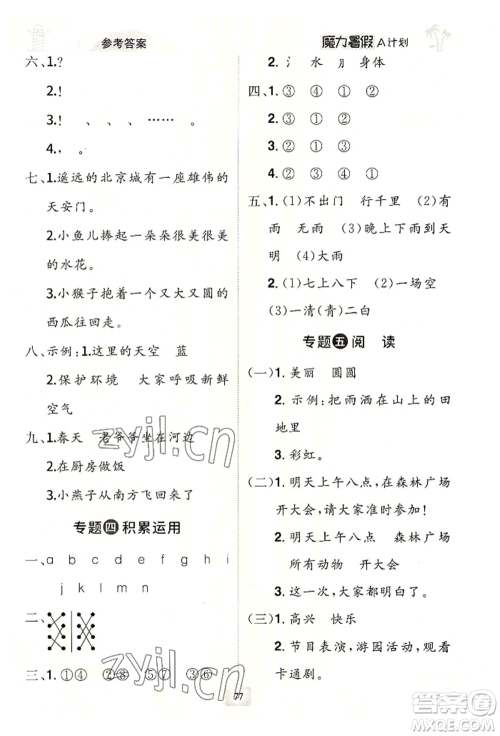 参考答案
魔力暑假 A计划
六、1.?
2.!
3.! 、 、 …… 。
4., 。
七、1.遥远的北京城有一座雄伟的
天安门。
2.小鱼儿捧起一朵朵很美很美
的水花。
3.小猴子抱着一个又大又圆的
西瓜往回走。
八、示例:1.这里的天空 蓝
2.保护环境 大家呼吸新鲜
空气
九、1.春天 老爷爷坐在河边
2.在厨房做饭
3.小燕子从南方飞回来了
专题四积累运用
一、a b c d e f g h i
j k l m n
二、
三、1.①④ 2.②⑧ 3.⑤⑦ 4.③⑥
氵 水 月 身体
四、1.③ ④ ① ②
2.③ ① ②
3.④ ③ ① ②
五、1.(1)不出门 行千里 (2)有
雨 无雨 (3)晚上下雨到天
明 (4)大雨
2.(1)七上八下 (2)一场空
(3)一清(青)二白
专题五阅 读
(一)1.美丽 圆圆
2.示例:把雨洒在山上的田
地里。
3.彩虹。
(二)1.明天上午八点,在森林广场
开大会,请大家准时参加!
2.明天上午八点 森林广场
所有动物 开大会
3.这一次,大家都来了。
(三)1.高兴 快乐
2.节目表演,游园活动,观看
卡通剧。
77
zyjl.cn
zyjl.cn
作业精灵